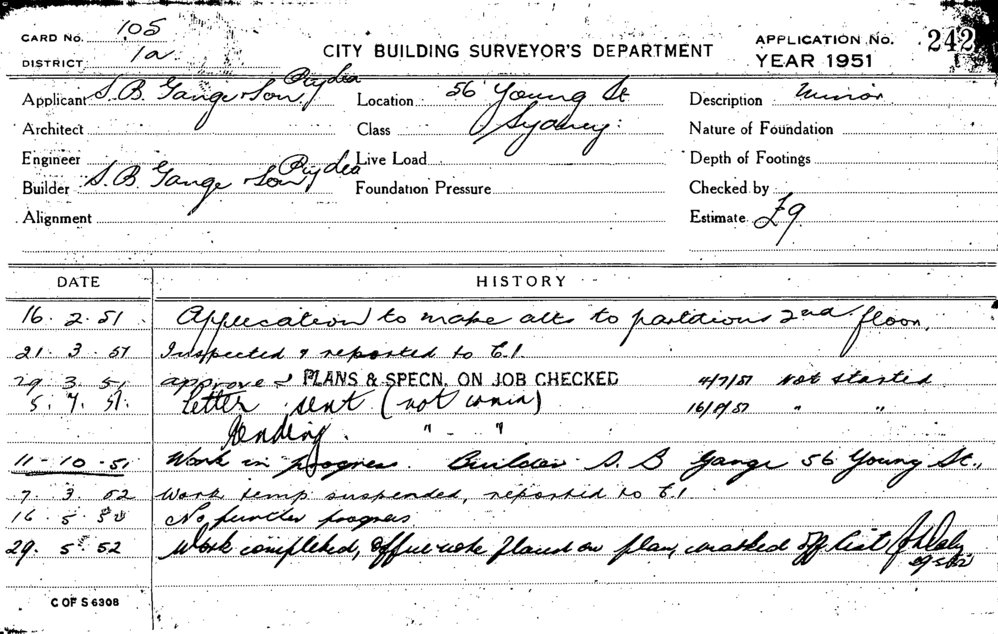 CARD No. 105
DISTRICT 1a
CITY BUILDING SURVEYOR'S DEPARTMENT
APPLICATION No. 242
YEAR 1951
Applicant S. B. Gange & Son,
Location 56 Young St
Sydney.
Description Minor
Architect
Class
Nature of Foundation
Engineer
Live Load
Depth of Footings
Builder S. B. Gange & Son,
Foundation Pressure
Checked by
Alignment
Estimate £9
DATE HISTORY
16. 2. 51 Application to make alts to partitions 2nd floor.
21. 3. 51 Inspected & reported to C.I.
29. 3. 51 approve PLANS & SPECN. ON JOB CHECKED 4/7/51 Not started
5. 7. 51. Letter sent (not in) 16/8/51 " "
Pending. " - "
11-10-51 Work in progress. Builder S. B Gange 56 Young St.,
7. 3. 52 Work temp suspended, reported to C.I.
16. 5. 52 No further progress
29. 5. 52 Work completed, office note placed on plan, marked off list
29.5.52
C OF S 6308